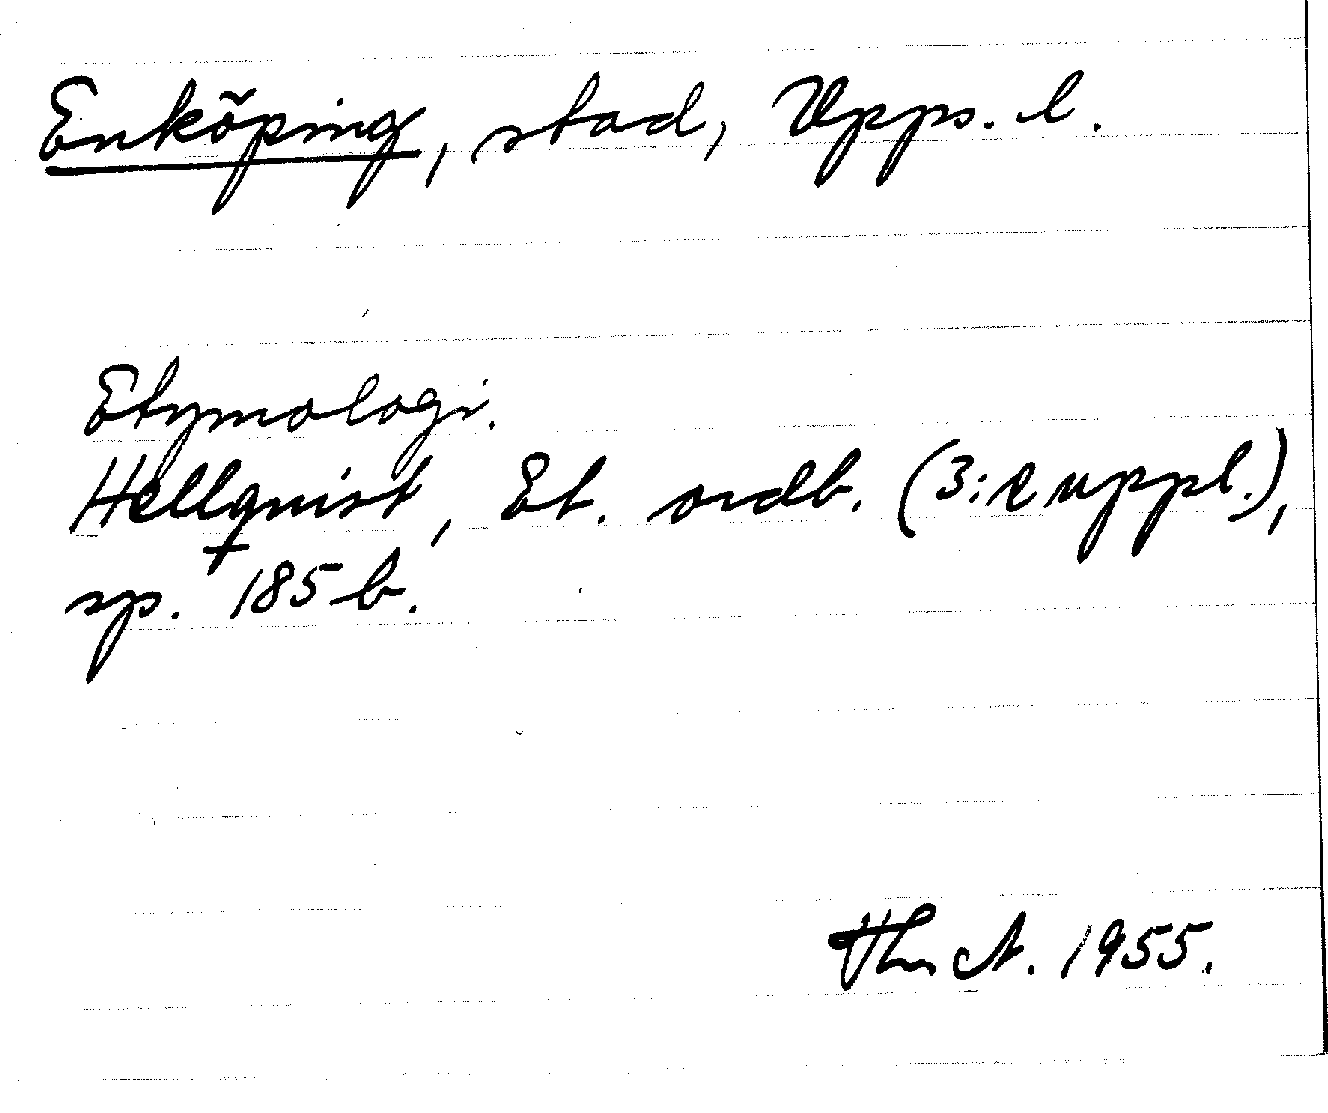 Enköping, stad, Upps. l.
Etymologi.
Hellquist, Et. ordb. (3:e uppl.),
sp. 185 b.
A. 1955.